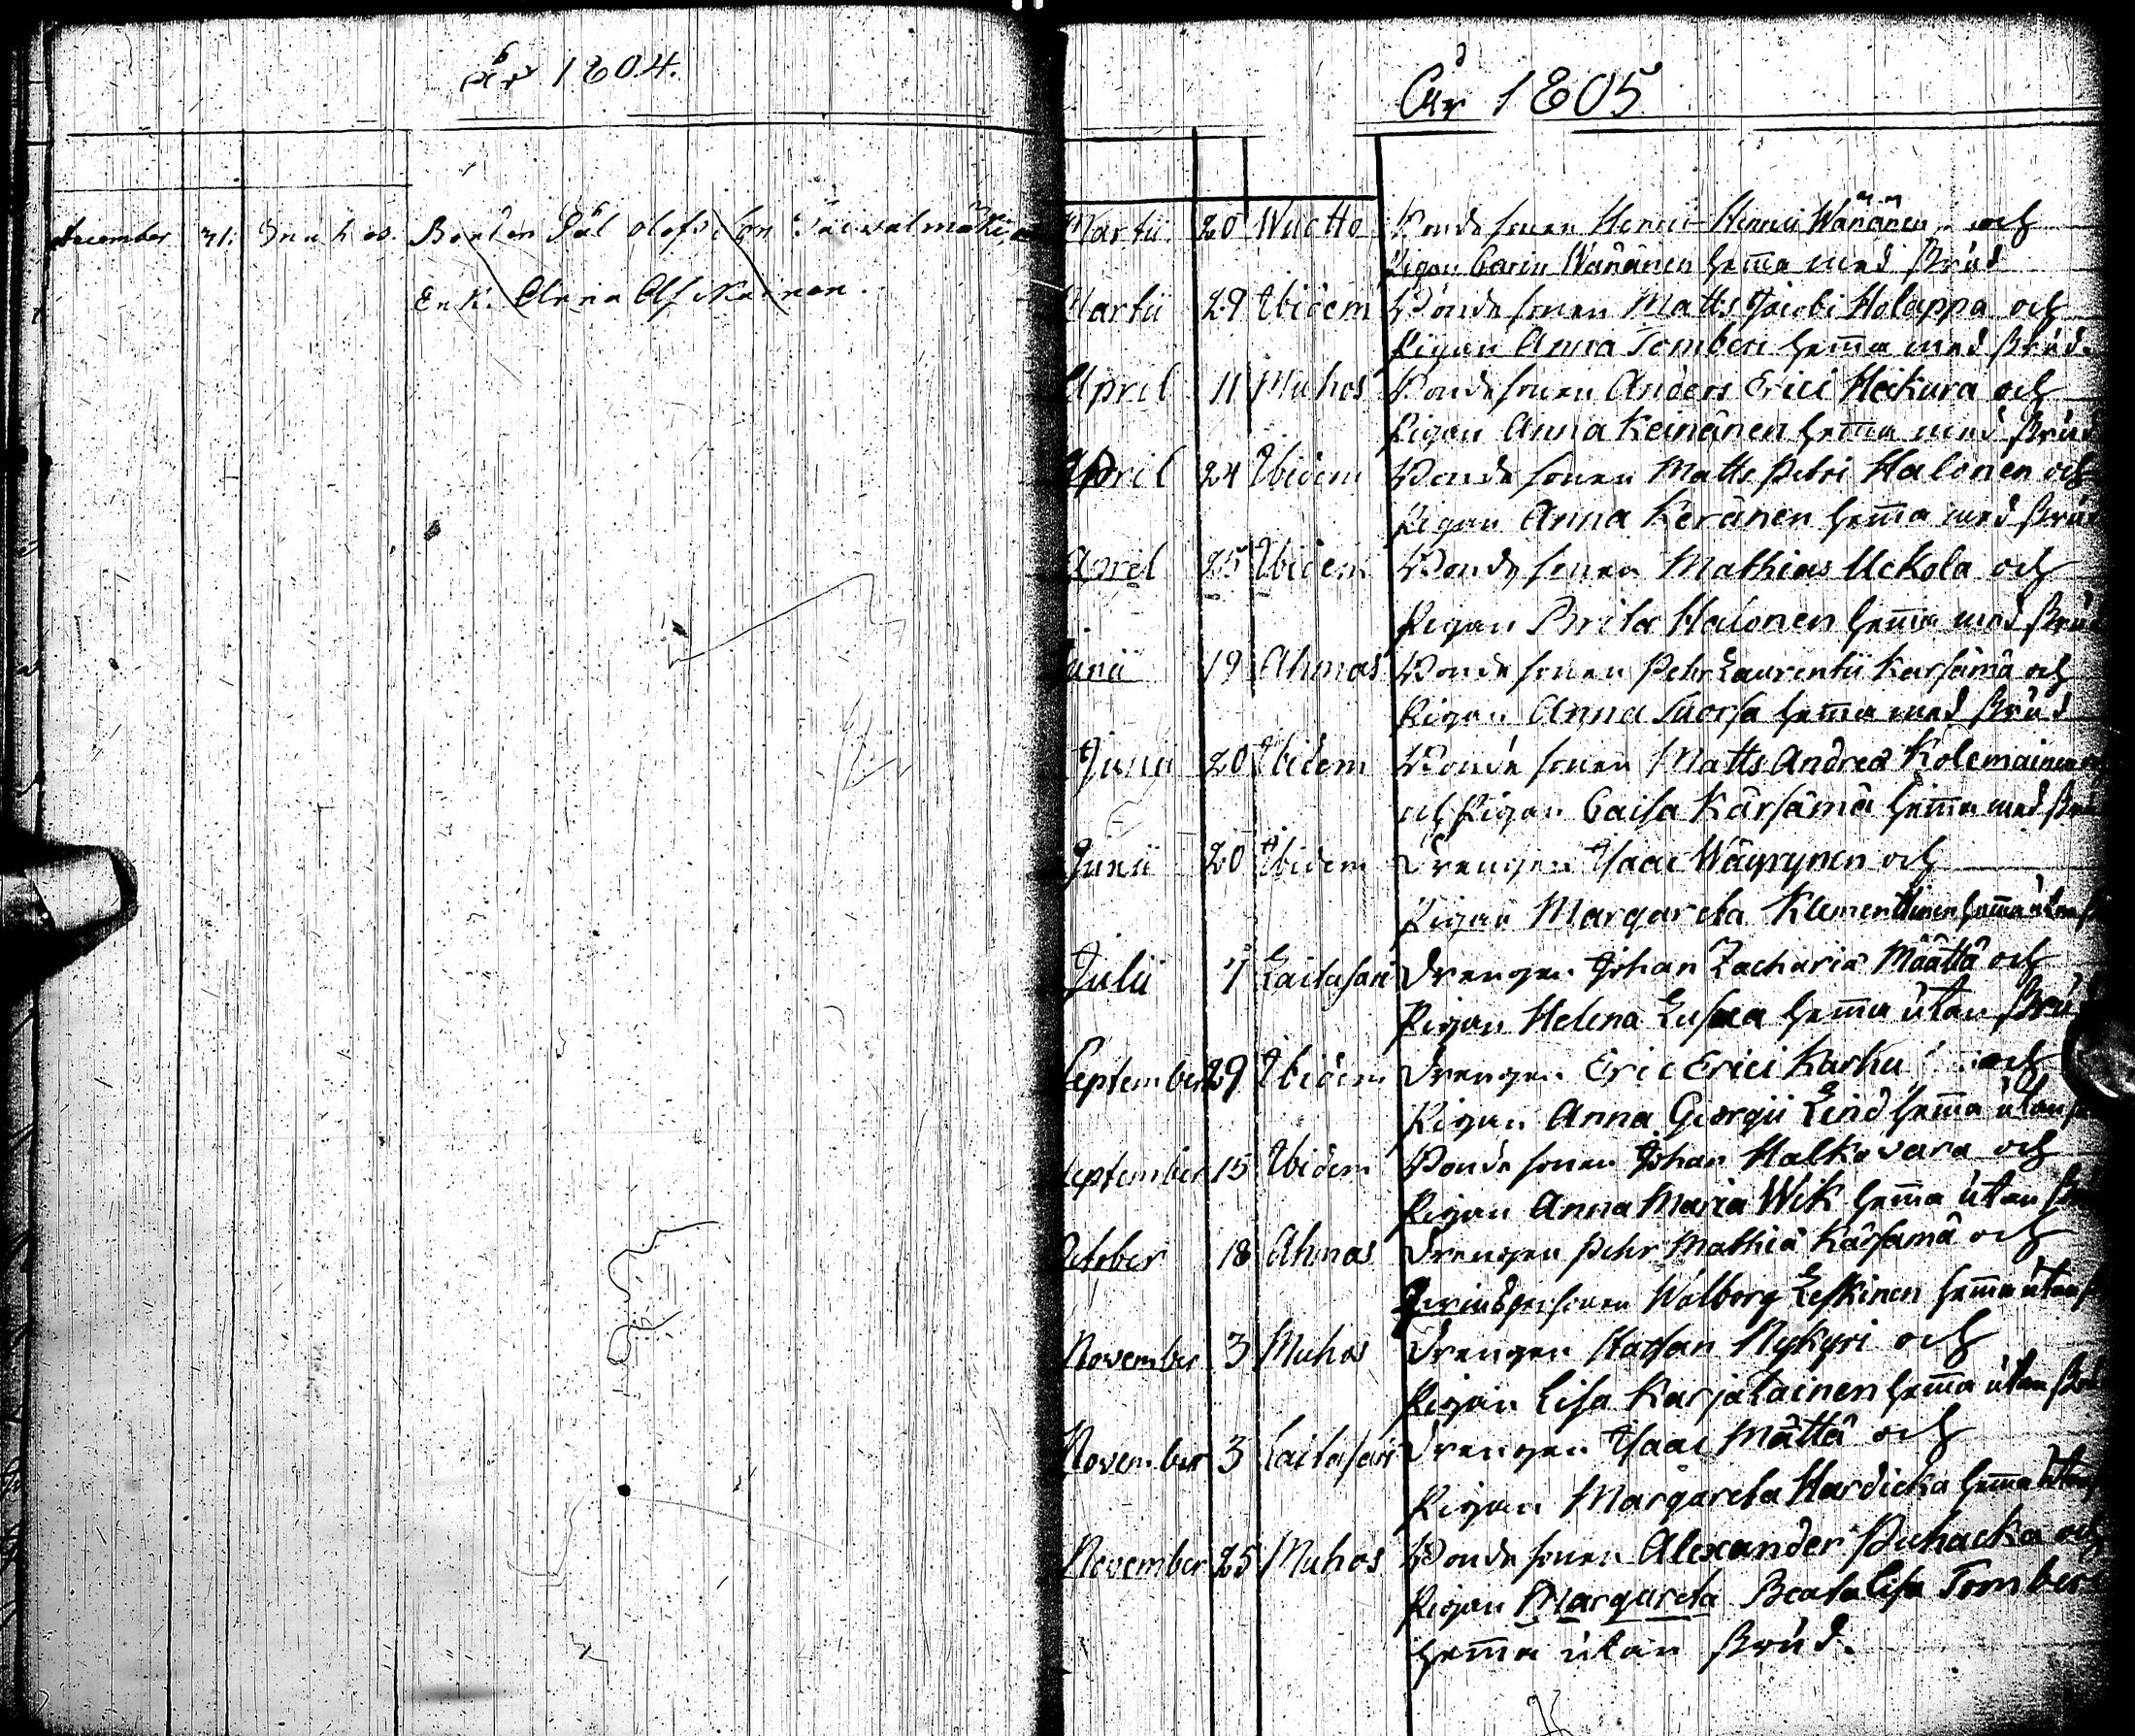 år 1804.
December 31. Muhos. Bonden Pål Olofsson Päivalmäki,
Enk. Anna Afskainen.
År 1805
Martii 20 Wuctto Bonde sonen Henric Henrici Wänänen och
Pigan Carin Wänänen hema med Brud
Martii 29 Ibidem Bonde sonen Matts Jacobi Holappa och
Pigan Anna Tomberi hema med Brud.
April 11 Muhos Bonde sonen Anders Erici Heikura och
Pigan Anna Keinänen hema med Brud
April 24 Ibidem Bonde sonen Matts Petri Halonen och
Pigan Anna Keränen hema med Brud
April 25 Ibidem Bonde sonen Mathias Uckola och
Pigan Brita Halonen hema med Brud
Junii 19 Ahmas Bonde sonen Pehr Laurentii Karsämä och
Pigan Anna Suorsa hema med Brud
Junii 20 Ibidem Bonde sonen Matts Andreæ Kolemainen
och Pigan Caisa Kärsämä hema med Brud
Junii 20 Ibidem Drengen Isaac Wäyrynen och
Pigan Margareta Klementtinen hema utan
Julii 7 Laitasari Drengen Johan Zachariæ Määttä och
Pigan Helena Lusua hema utan Brud
September 29 Ibidem Drengen Eric Erici Karhu och
Pigan Anna Georgii Lind hema utan
September 15 Ibidem Bonde sonen Johan Halkovara och
Pigan Anna Maria Wik hema utan
October 18 Ahmas Drengen Pehr Mathiæ Kärsämä och
Qvinspersonen Walborg Leskinen hema utan
November 3 Muhos Drengen Staffan Nykyri och
Pigan Lisa Karjalainen hema utan Brud
November 3 Laitasari Drengen Isaac Mättä och
Pigan Margareta Hardicka hema utan
November 25 Muhos Bonde sonen Alexander Puhacka och
Pigan Margareta Beata Lisa Tomberi
hema utan Brud.